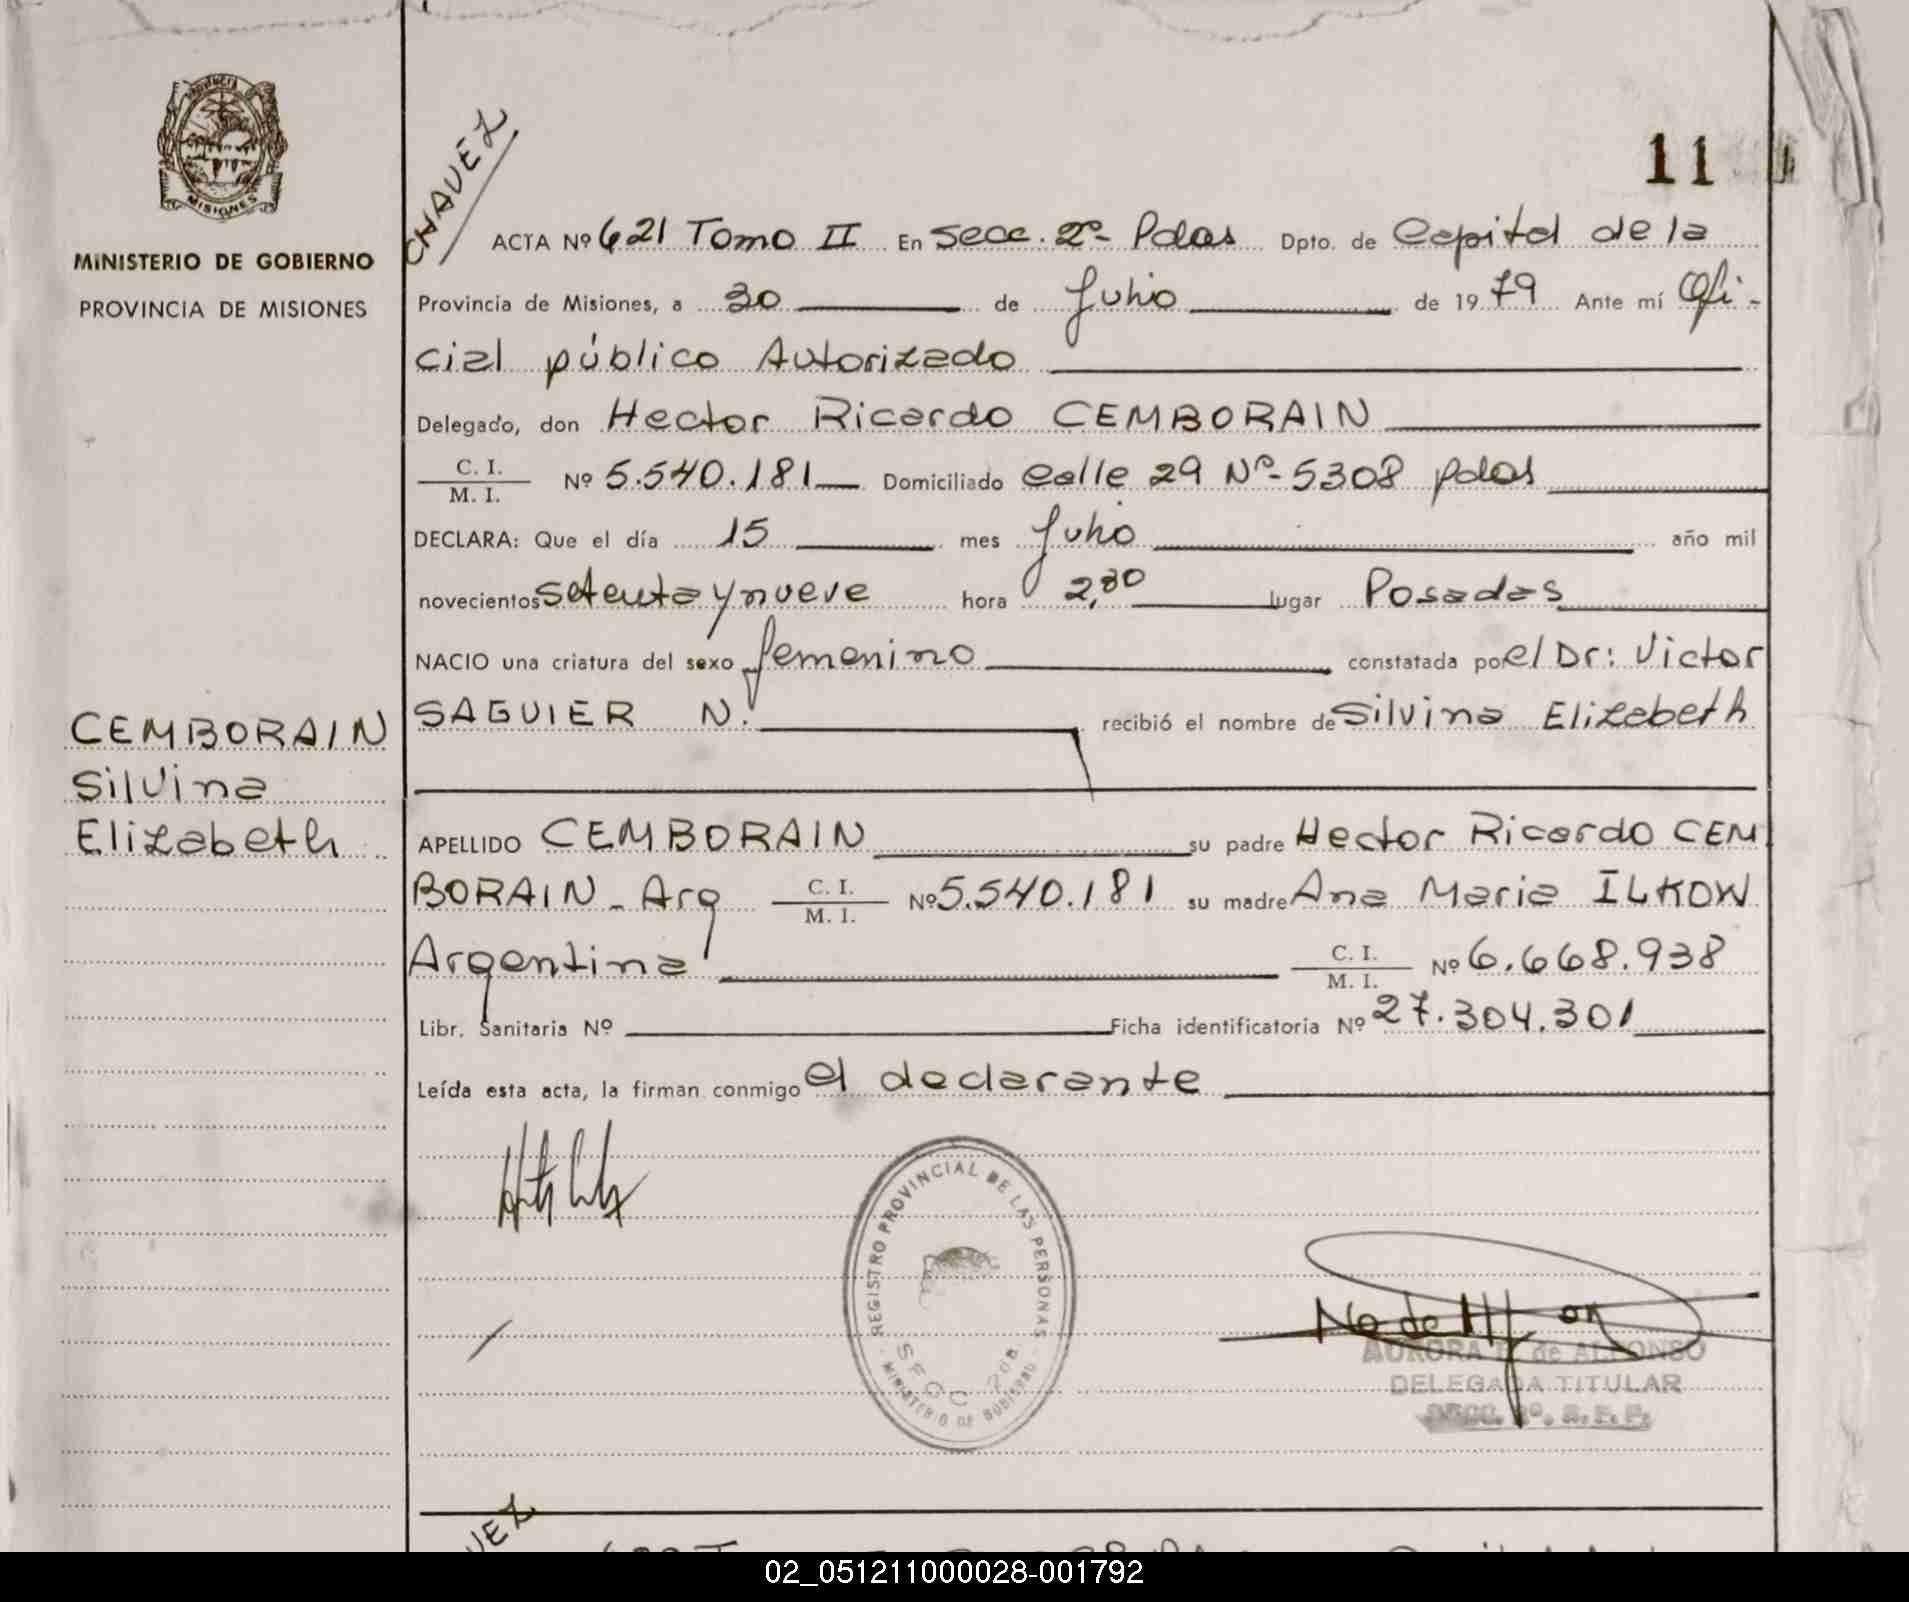 PROVINCIA
MISIONES
MINISTERIO DE GOBIERNO
PROVINCIA DE MISIONES
CEMBORAIN
Silvina
Elizabeth
CHAVEZ
11
ACTA Nº 621 Tomo II En Secc. 2º- Pdas Dpto. de Capital de la
Provincia de Misiones, a 30 de Julio de 1979 Ante mí Ofi-
cial público Autorizado
Delegado, don Hector Ricardo CEMBORAIN
C. I.
M. I. Nº 5.540.181 Domiciliado Calle 29 Nº- 5308 pdas
DECLARA: Que el día 15 mes Julio año mil
novecientos setenta y nueve hora 2,30 lugar Posadas
NACIO una criatura del sexo femenino constatada por el Dr: Victor
SAGUIER N. recibió el nombre de Silvina Elizabeth
APELLIDO CEMBORAIN su padre Hector Ricardo CEM
BORAIN - Arg C. I. M. I. Nº 5.540.181 su madre Ana Maria ILKOW
Argentina C. I. M. I. Nº 6.668.938
Libr. Sanitaria Nº Ficha identificatoria Nº 27.304.301
Leída esta acta, la firman conmigo el declarante
REGISTRO PROVINCIAL DE LAS PERSONAS
MINISTERIO DE
AURORA de ALFONSO
DELEGADA TITULAR
SECC. 2º. R.P.P.
VEZ
02_051211000028-001792